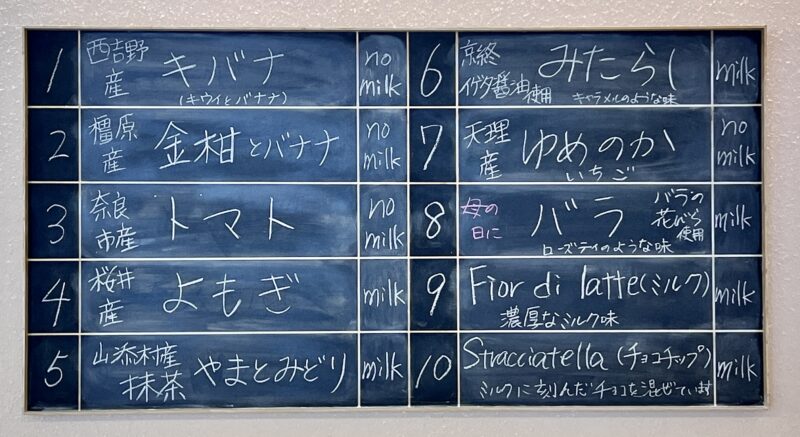 1
西吉野
産
キバナ
(キウイとバナナ)
no
milk
2
橿原
産
金柑とバナナ
no
milk
3
奈良
市産
トマト
no
milk
4
桜井
産
よもぎ
milk
5
山添村産
抹茶
やまとみどり
milk
6
京終
イゲタ醤油使用
みたらし
キャラメルのような味
milk
7
天理
産
ゆめのか
いちご
no
milk
8
母の
日に
バラ
ローズティのような味
バラの
花びら
使用
milk
9
Fior di latte(ミルク)
濃厚なミルク味
milk
10
Stracciatella (チョコチップ)
ミルクに刻んだチョコを混ぜています
milk